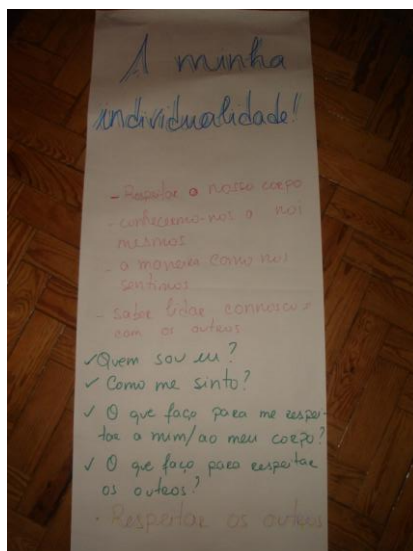 A minha
individualidade!
- Respeitar o nosso corpo
- conhecermo-nos a nós
mesmos
- a maneira como nos
sentimos
- saber lidar connosco e
com os outros
✓ Quem sou eu?
✓ Como me sinto?
✓ O que faço para me respei-
tar a mim/ao meu corpo?
✓ O que faço para respeitar
os outros?
- Respeitar os outros